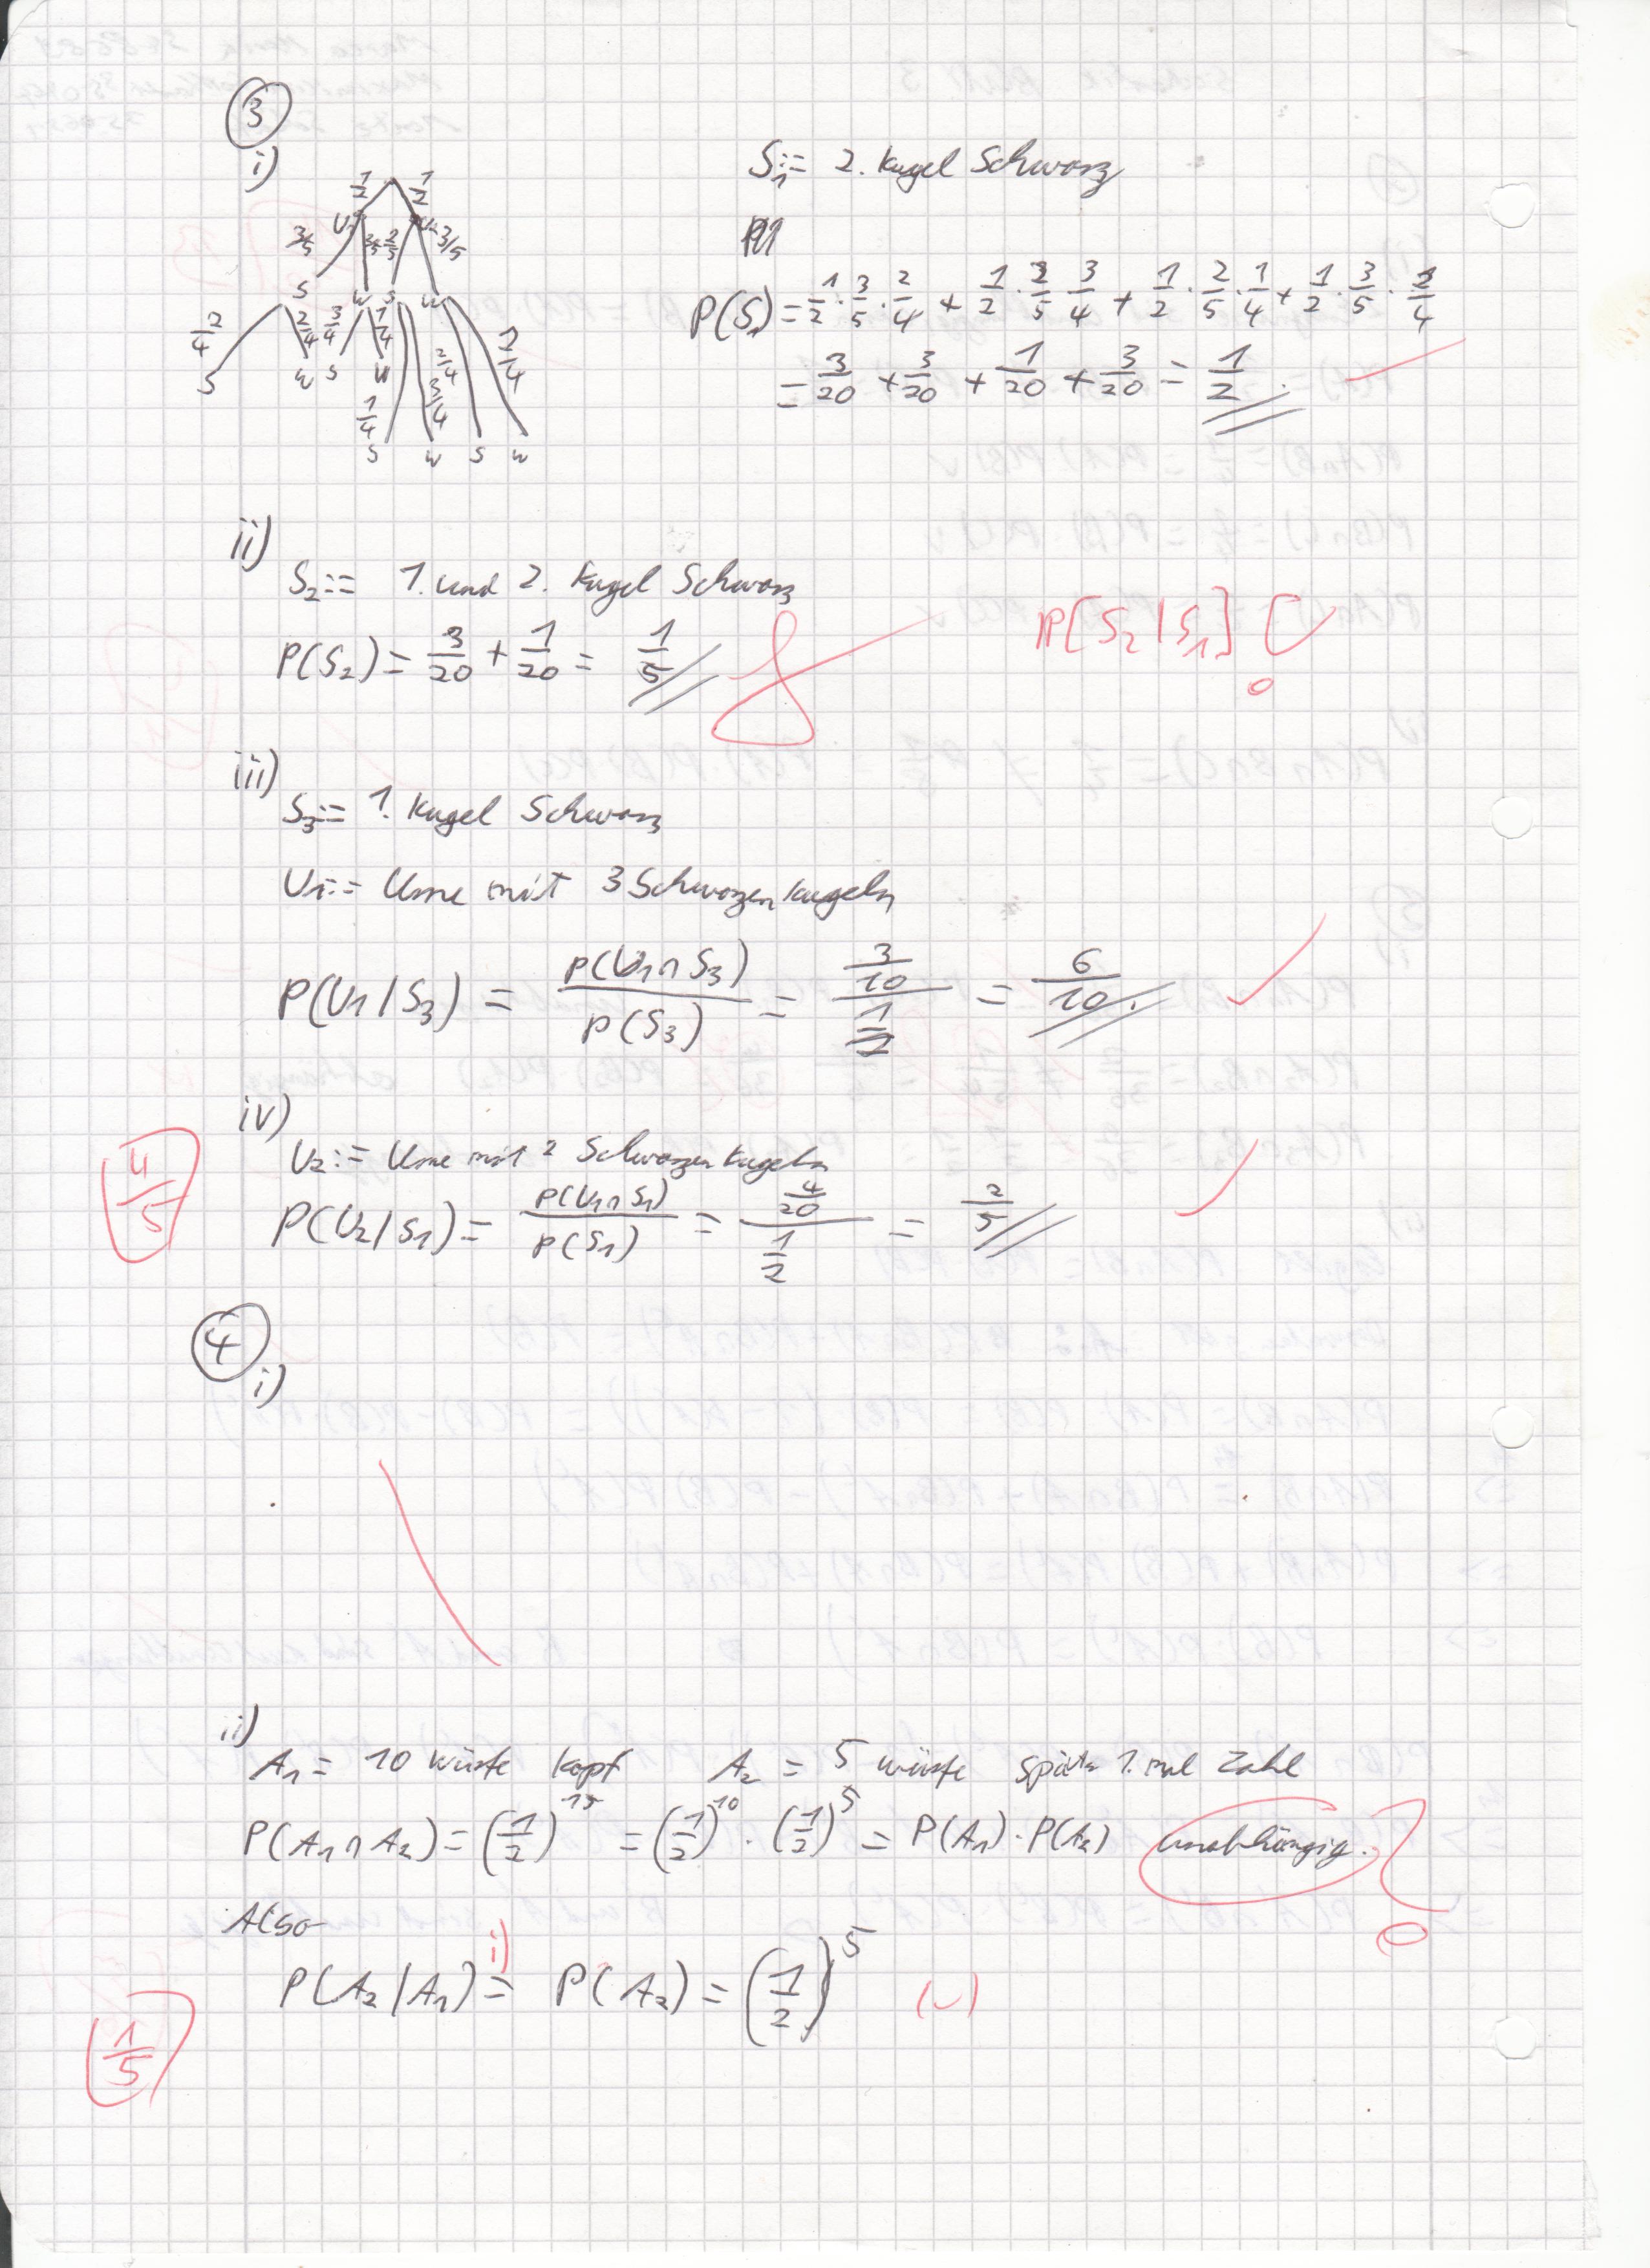 3
i)
1/2 1/2
U1 U2
3/5 2/5 2/5 3/5
S W S W
2/4 2/4 3/4 1/4 2/4 2/4
S W S W
1/4 3/4
S W S W
S1:= 2. Kugel Schwarz
P(S1) = 1/2 · 3/5 · 2/4 + 1/2 · 2/5 · 3/4 + 1/2 · 2/5 · 1/4 + 1/2 · 3/5 · 2/4
= 3/20 + 3/20 + 1/20 + 3/20 = 1/2.
ii)
S2:= 1. und 2. Kugel Schwarz
P(S2) = 3/20 + 1/20 = 1/5
P[S2|S1]
iii)
S3:= 1. Kugel Schwarz
U1:= Urne mit 3 Schwarzen Kugeln
P(U1/S3) = P(U1∩S3)/P(S3) = (3/10)/(1/2) = 6/10.
iv)
U2:= Urne mit 2 Schwarzen Kugeln
4/5
P(U2/S1) = P(U1∩S1)/P(S1) = (4/20)/(1/2) = 2/5
4
i)
ii)
A1 = 10 würfe Kopf A2 = 5 würfe später 1. mal Zahl
P(A1∩A2) = (1/2)^15 = (1/2)^10 · (1/2)^5 = P(A1) · P(A2) unabhängig.
Also
i)
P(A2/A1) = P(A2) = (1/2)^5 (✓)
1/5